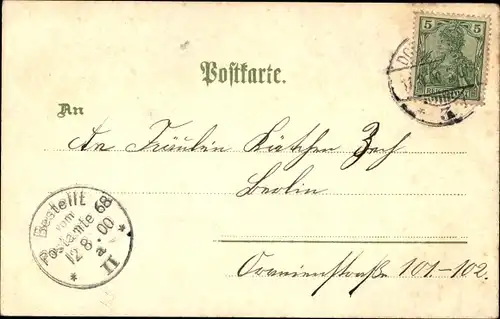 5
Postkarte.
An
An Fräulein Käthchen Zech
Berlin
Oranienstraße 101-102.
Bestellt
vom
Postamte 68
12 8. 00
a.
II